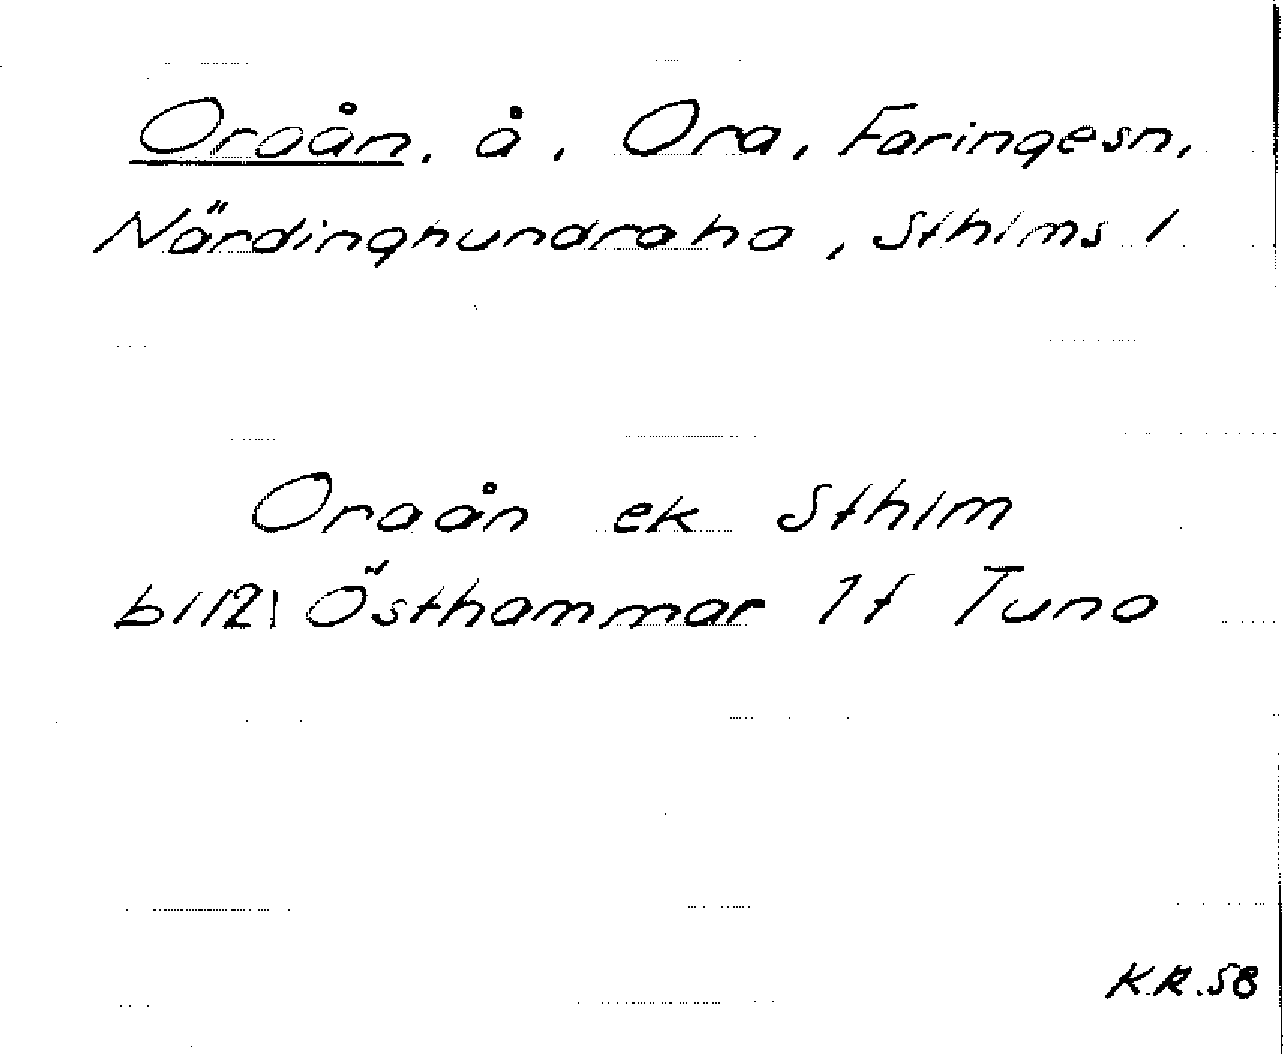 Oraån, å, Ora, Faringesn,
Närdinghundra ha, Sthlms l
Oraån ek Sthlm
bl 121 Östhammar 1 f Tuna
K.R. 58